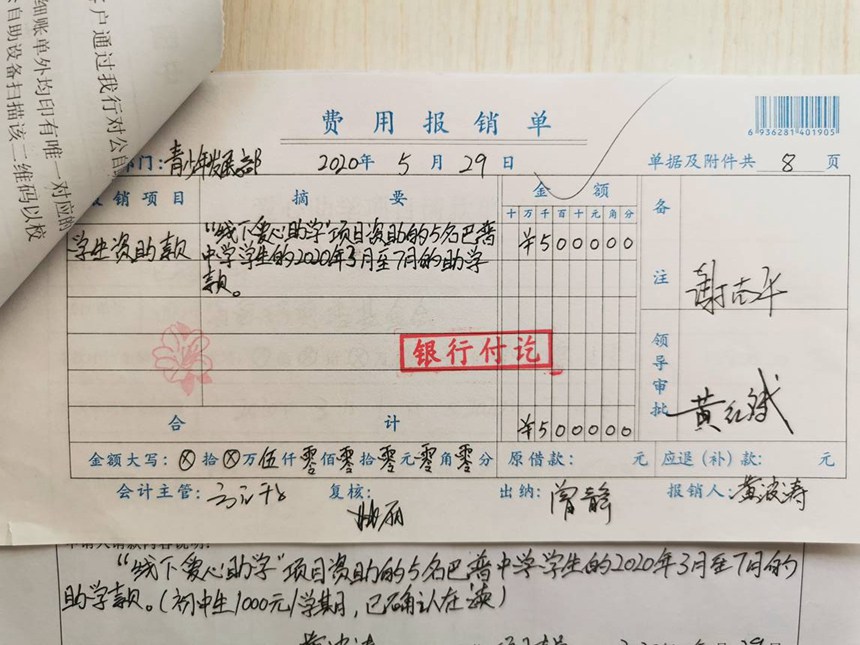 户通过我行对公自
细账单外均印有唯一对应的
自助设备扫描该二维码以校
费用报销单
6 936281 401905
部门：青少年发展部 2020年 5 月 29 日 单据及附件共 8 页
报销项目 摘 要 金 额 备
十 万 千 百 十 元 角 分
学生资助款 “线下爱心助学”项目资助的5名巴普 ¥500000
中学学生的2020年3月至7月的助学
款。
注
领导审批
银行付讫
合 计 ¥500000
金额大写：ⓧ拾ⓧ万伍仟零佰零拾零元零角零分 原借款： 元 应退（补）款： 元
会计主管： 复核： 出纳：曾静 报销人：黄波涛
申请人请款内容说明：
“线下爱心助学”项目资助的5名巴普中学学生的2020年3月至7月的
助学款。（初中生1000元/学期，已确认在读）